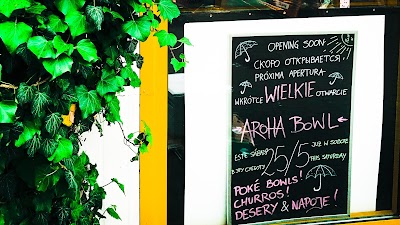 OPENING SOON
СКОРО ОТКРЫВАЕТСЯ!
PRÓXIMA APERTURA
WKRÓTCE WIELKIE OTWARCIE
AROHA BOWL
ESTE SÁBADO 25/5 JUŻ W SOBOTĘ
THIS SATURDAY
POKÉ BOWLS!
CHURROS!
DESERY & NAPOJE!